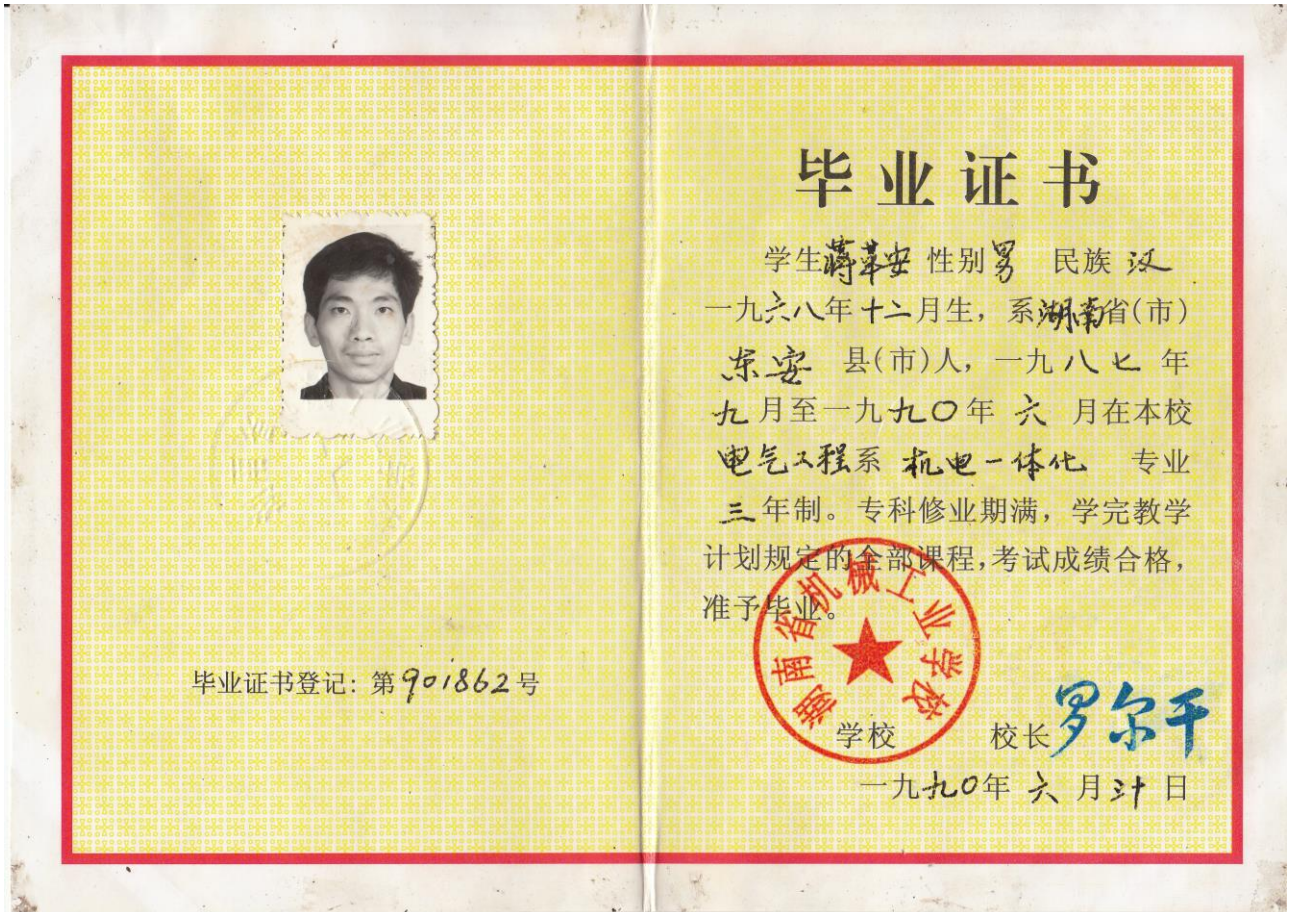 毕业证书登记: 第901862号
毕业证书
学生蒋华安 性别男 民族 汉
一九六八年十二月生, 系湖南省(市)
东安 县(市)人, 一九八七 年
九月至一九九〇年 六 月在本校
电气工程系 机电一体化 专业
三年制。专科修业期满, 学完教学
计划规定的全部课程, 考试成绩合格,
准予毕业。
湖南省机械工业学校
学校 校长罗尔干
一九九〇年 六 月三十日